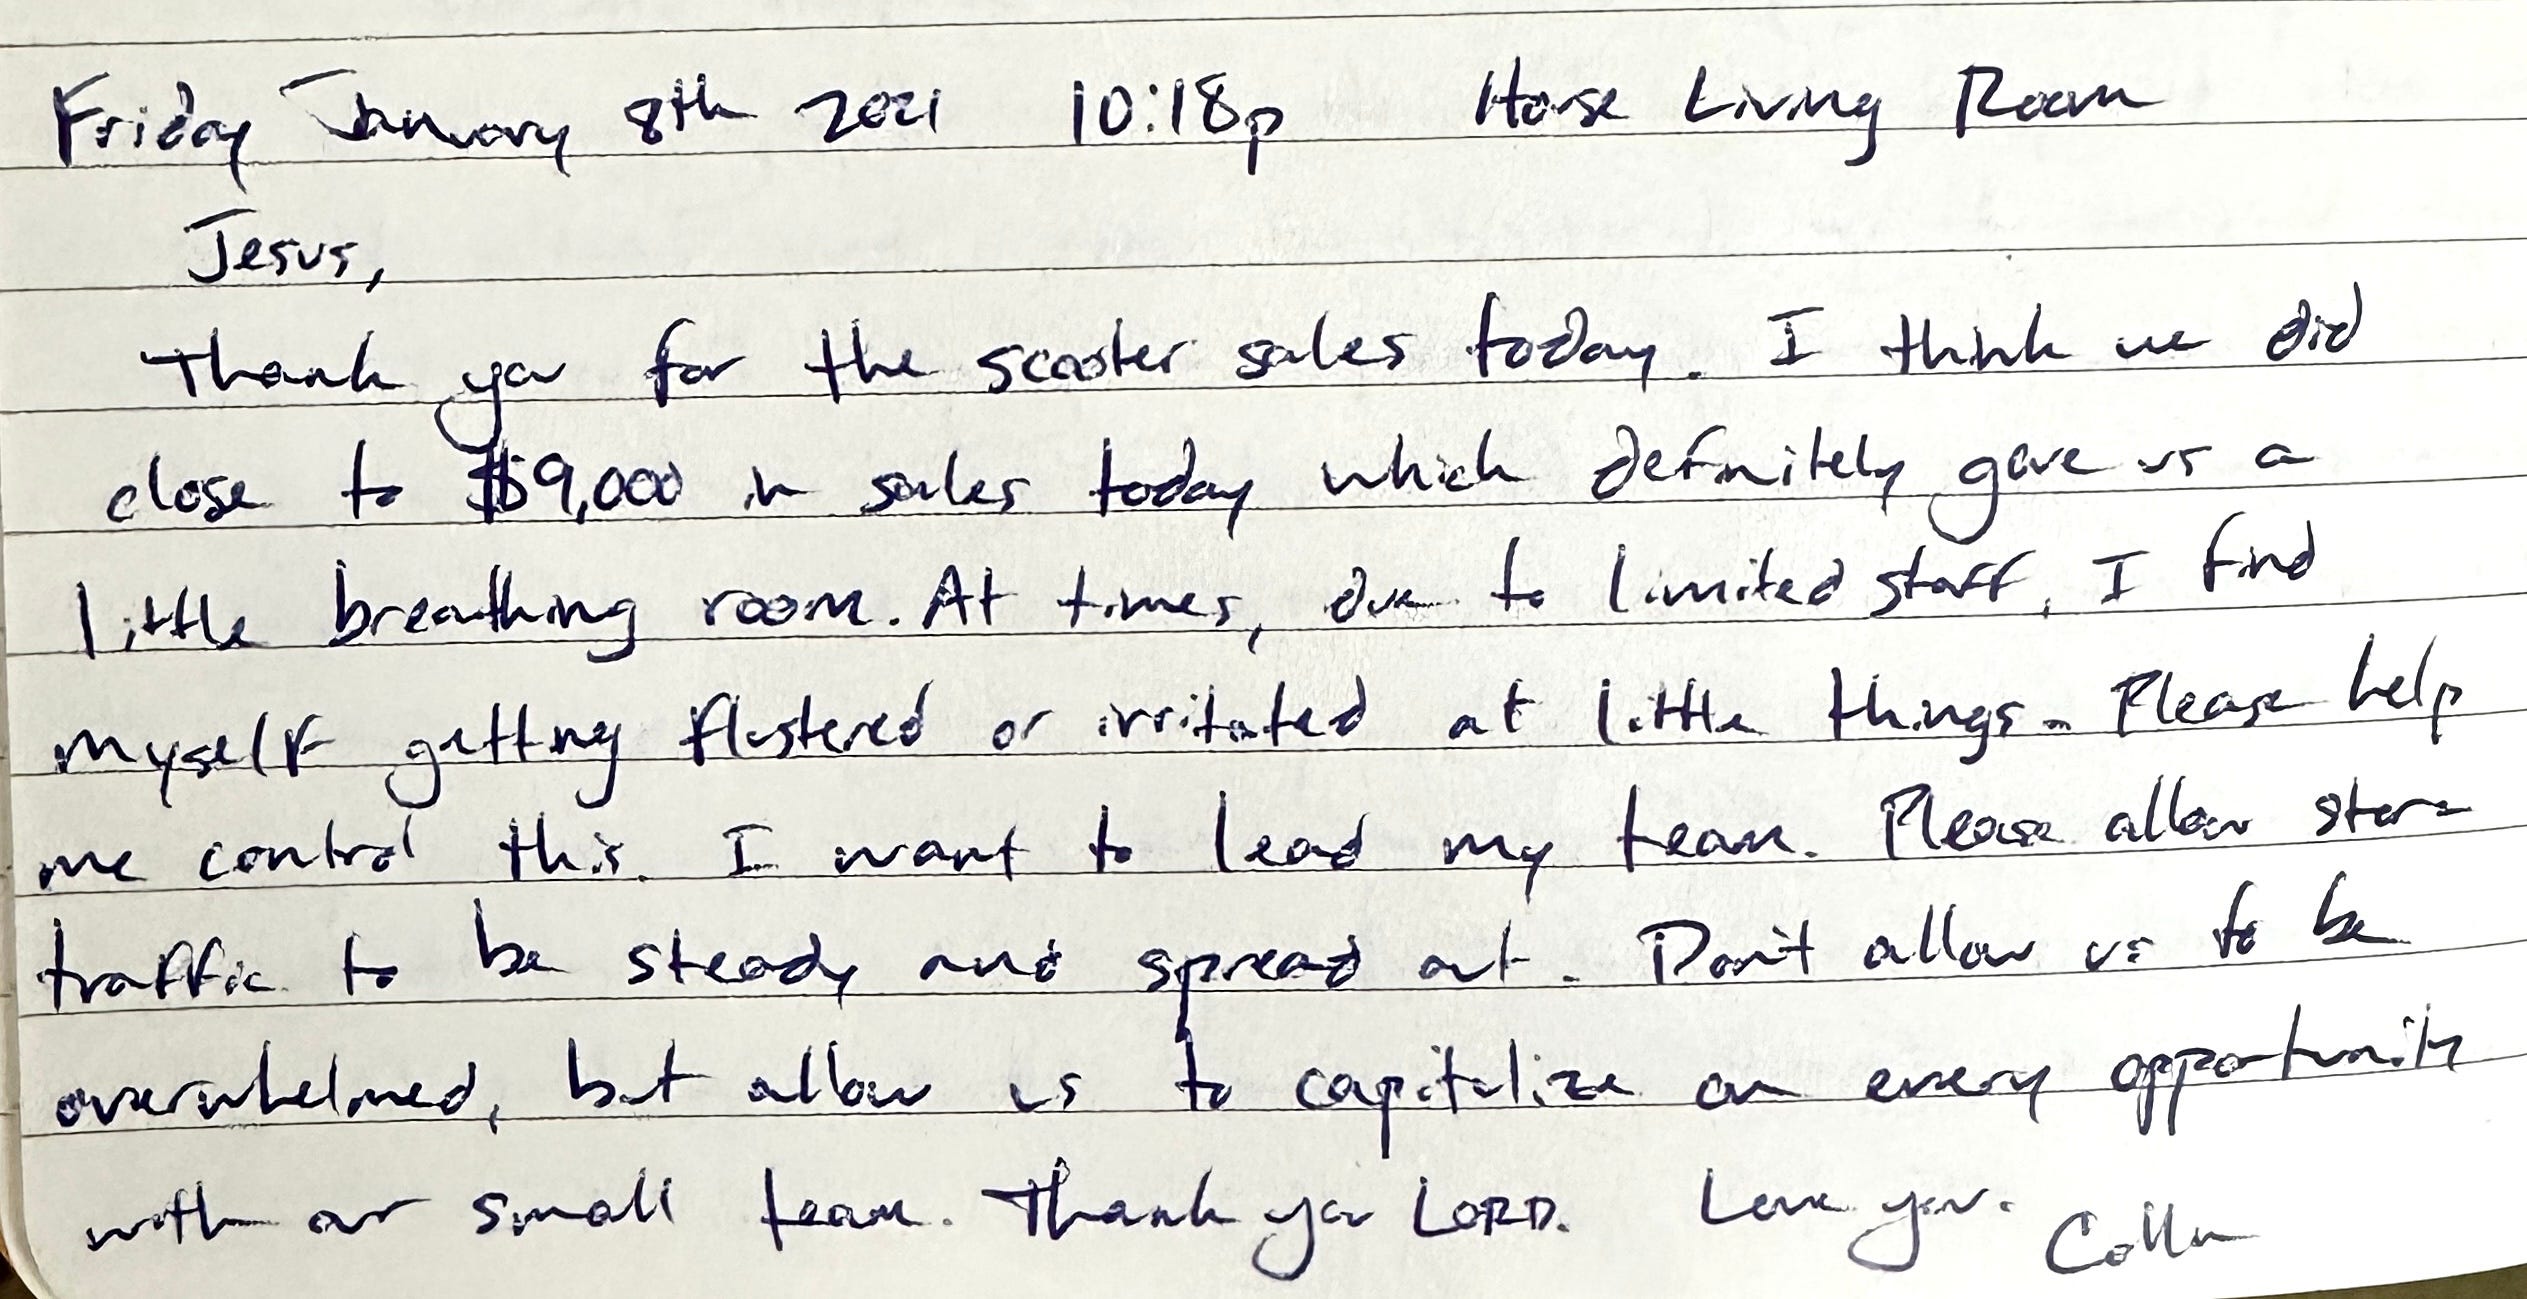 Friday January 8th 2021 10:18p House Living Room
Jesus,
Thank you for the scooter sales today. I think we did
close to $9,000 in sales today which definitely gave us a
little breathing room. At times, due to limited staff, I find
myself getting flustered or irritated at little things. Please help
me control this. I want to lead my team. Please allow store
traffic to be steady and spread out. Don't allow us to be
overwhelmed, but allow us to capitalize on every opportunity
with our small team. Thank you LORD. Love you. Collin